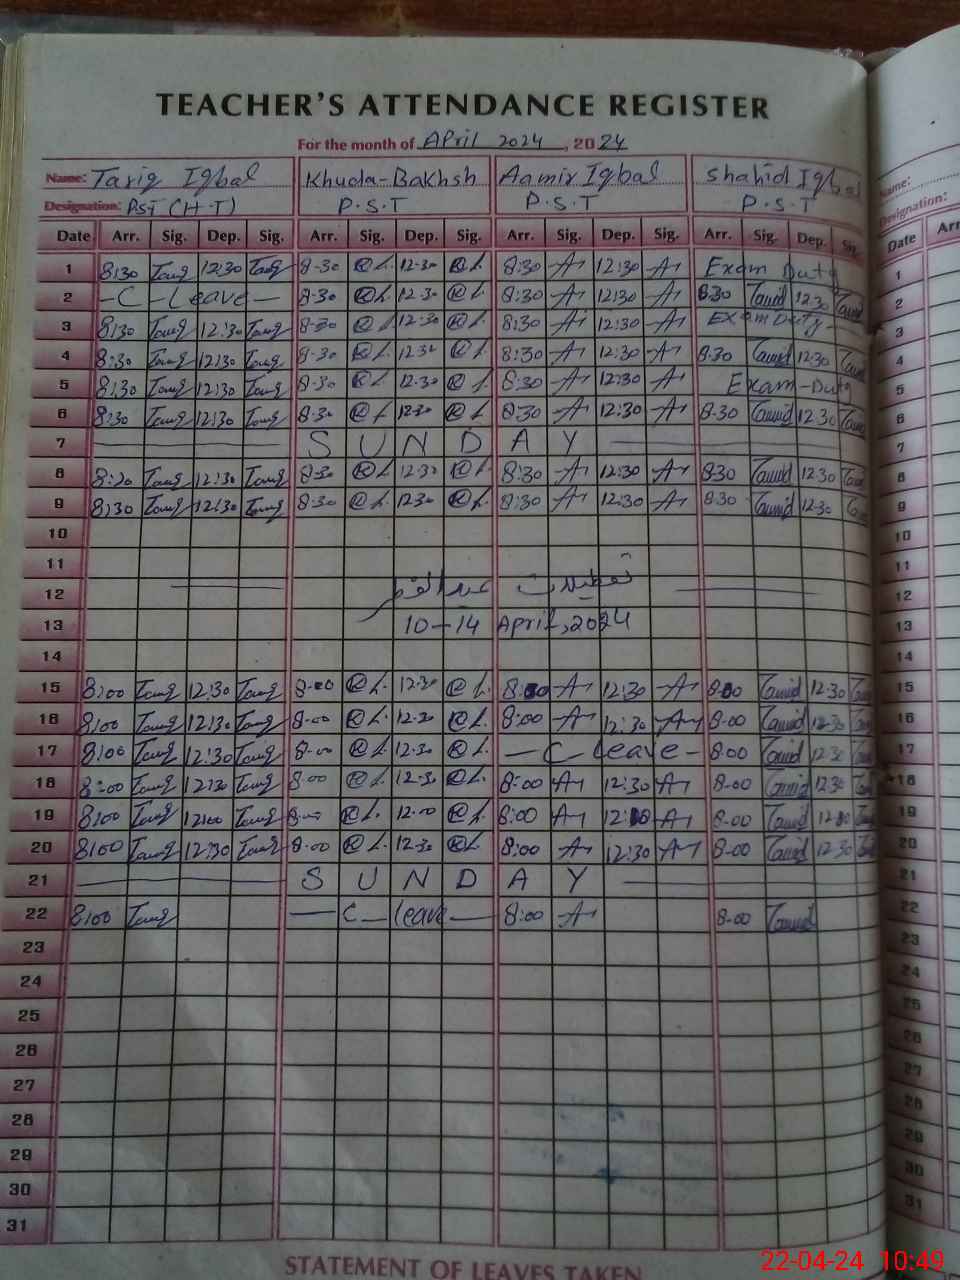 TEACHER'S ATTENDANCE REGISTER
For the month of April 2024, 2024
Name: Tariq Iqbal Khuda-Bakhsh Aamir Iqbal Shahid Iqbal Name:
Designation: PST (H.T) P.S.T P.S.T P.S.T Designation:
Date Arr. Sig. Dep. Sig. Arr. Sig. Dep. Sig. Arr. Sig. Dep. Sig. Arr. Sig. Dep. Sig. Date Arr
1 8:30 12:30 8-30 12-30 8:30 12:30 Exam Duty 1
2 - C - Leave - 8-30 12-30 8:30 12:30 8-30 12-30 2
3 8:30 12:30 8-30 12-30 8:30 12:30 Exam Duty- 3
4 8:30 12:30 8-30 12-30 8:30 12:30 8-30 12-30 4
5 8:30 12:30 8-30 12-30 8:30 12:30 Exam-Duty 5
6 8:30 12:30 8-30 12-30 8:30 12:30 8-30 12-30 6
7 SUNDAY 7
8 8:30 12:30 8-30 12-30 8:30 12:30 8-30 12-30 8
9 8:30 12:30 8-30 12-30 8:30 12:30 8-30 12-30 9
10 10
11 11
12 تعطیلات عیدالفطر 12
13 10-14 April, 2024 13
14 14
15 8:00 12:30 8-00 12-30 8:00 12:30 8-00 12-30 15
16 8:00 12:30 8-00 12-30 8:00 12:30 8-00 12-30 16
17 8:00 12:30 8-00 12-30 - C leave - 8-00 12-30 17
18 8:00 12:30 8-00 12-30 8:00 12:30 8-00 12-30 18
19 8:00 12:00 8-00 12-00 8:00 8-00 19
20 8:00 12:30 8-00 12-30 8:00 12:30 8-00 12-30 20
21 SUNDAY 21
22 8:00 - C - leave - 8:00 8-00 22
23 23
24 24
25 25
26 26
27 27
28 28
29 29
30 30
31 31
STATEMENT OF LEAVES TAKEN
22-04-24 10:49